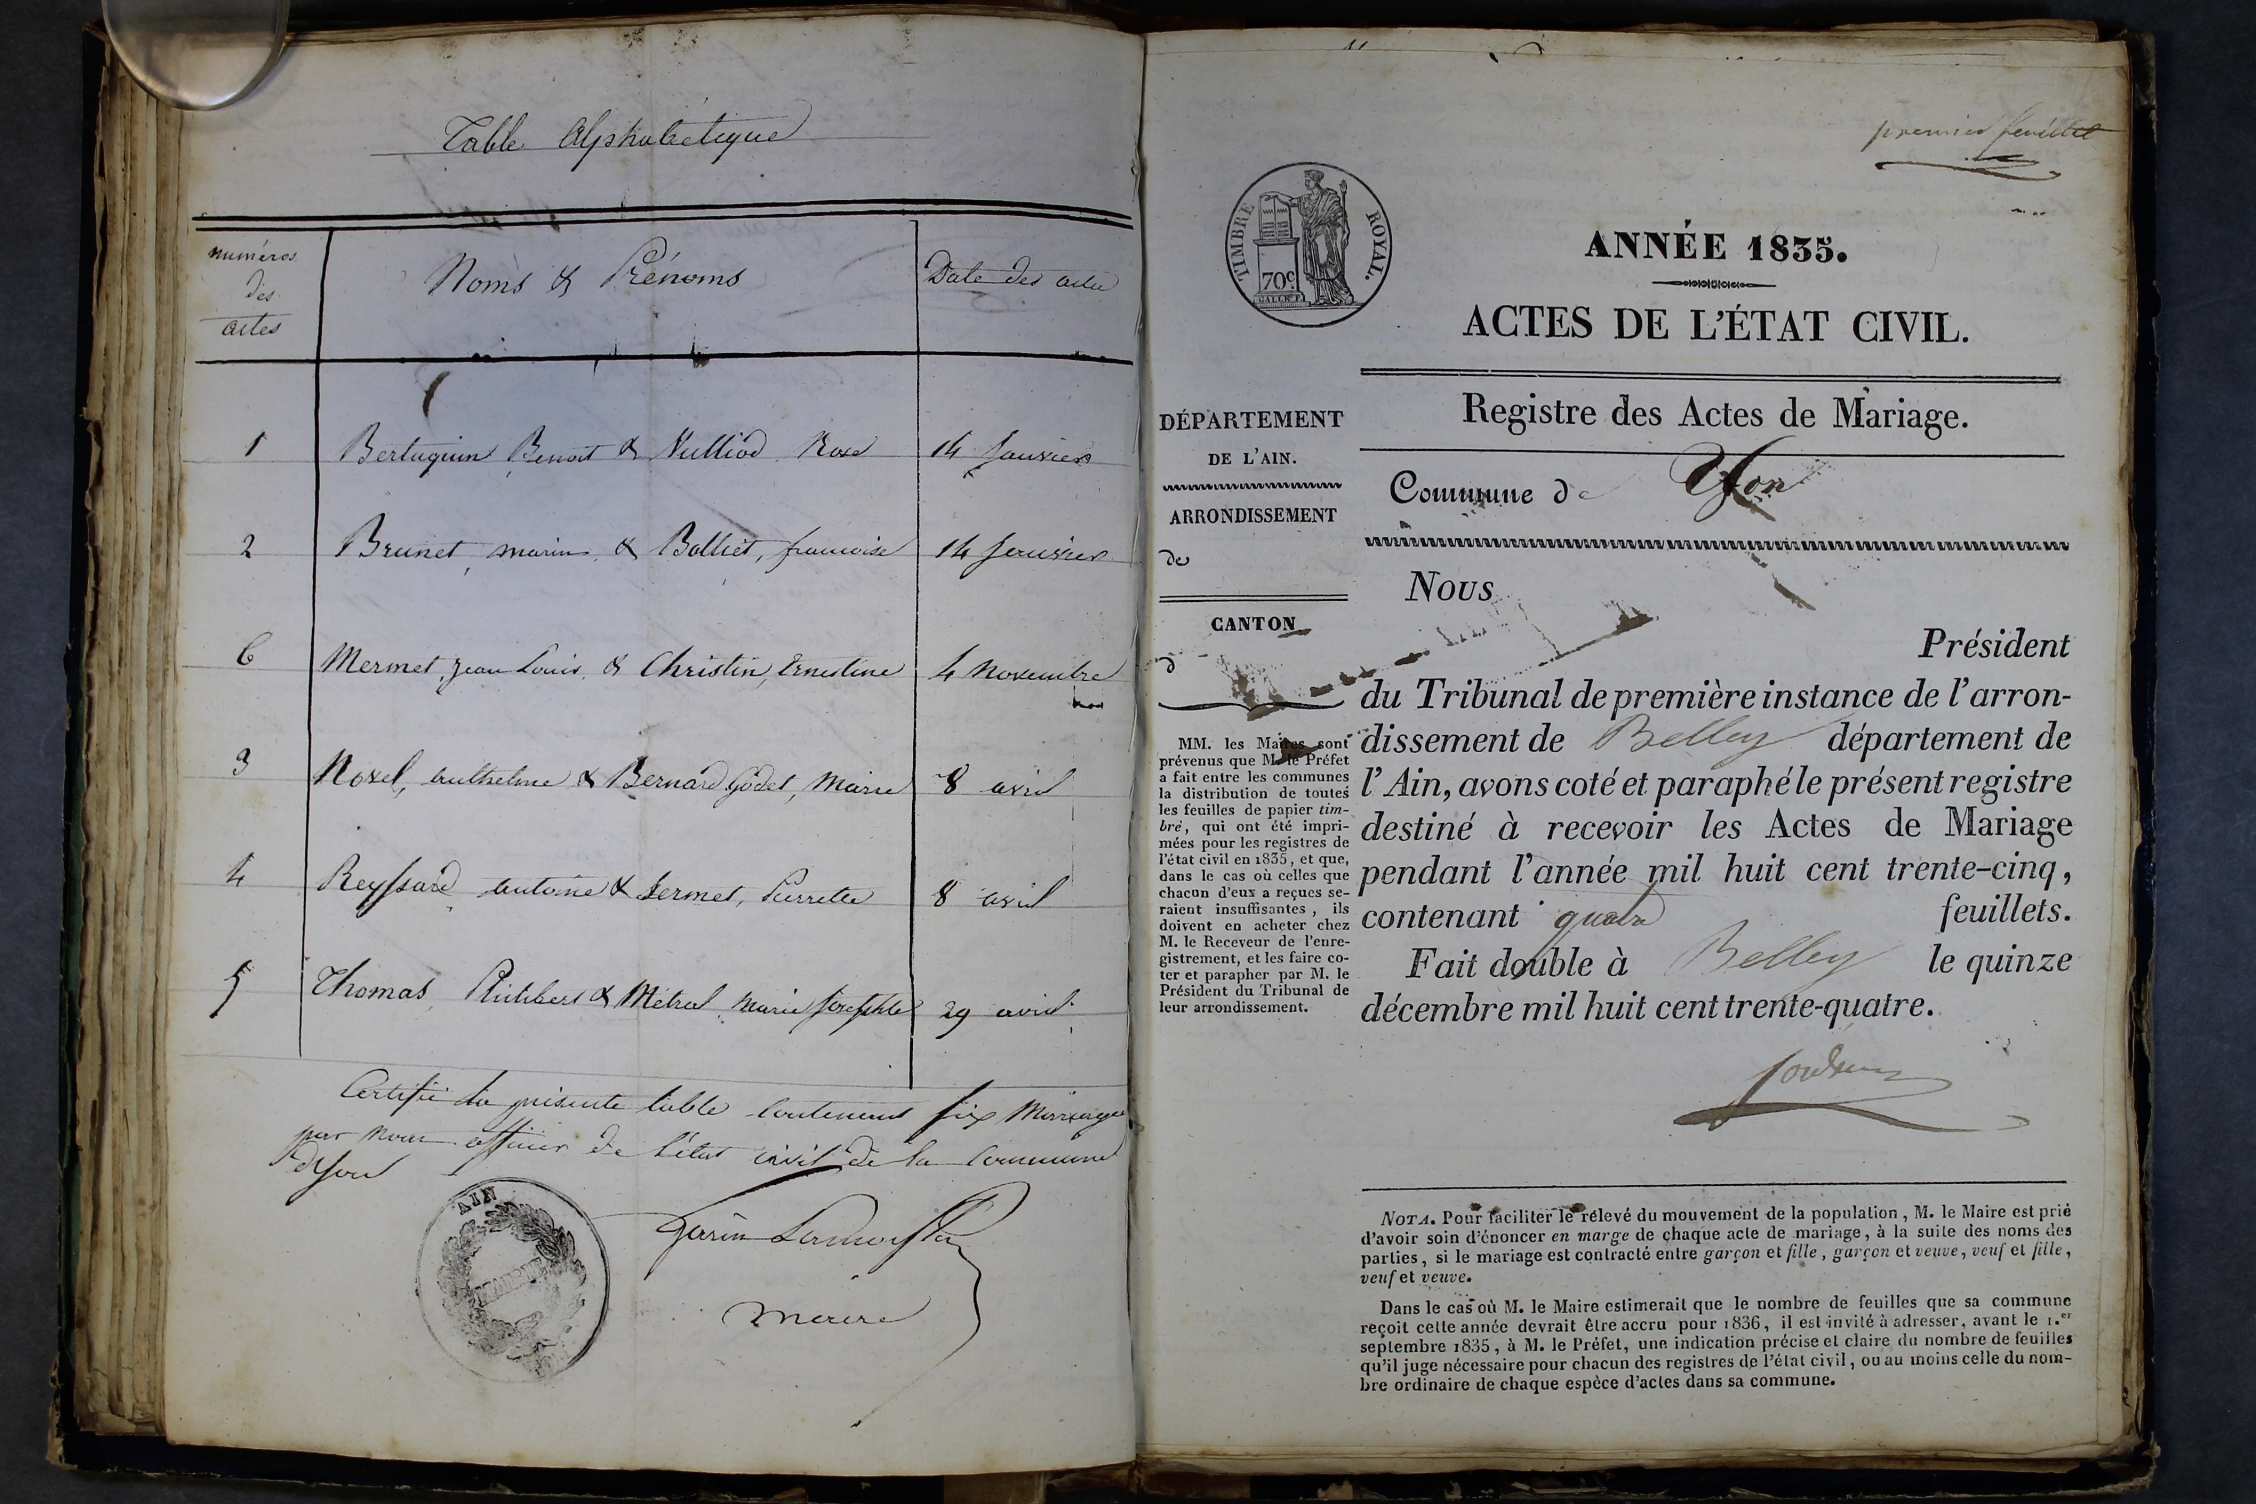 Table Alphabétique
numéros
des
actes
Noms & Prénoms
Date des actes
1 Bertuquin Benoit & Vulliod Rose 14 Janvier
2 Brunet, marin & Balliet, francoise 14 Janvier
6 Mermet, Jean Louis, & Christin, Ernestine 4 Novembre
3 Novel, anthelme & Bernard Godet, Marie 8 avril
4 Reyssard, antoine & Sermet, Pierrette 8 avril
5 Thomas, Philibert & Métral, Marie Josephte 29 avril
Certifié la présente table contenant six Mariages
par nous officier de l'état civil de la Commune
d'yon
AIN
MAIRIE
maire
premier feuillet
TIMBRE ROYAL.
70c.
ANNÉE 1835.
ACTES DE L'ÉTAT CIVIL.
Registre des Actes de Mariage.
Commune de Yon
DÉPARTEMENT
DE L'AIN.
ARRONDISSEMENT
de
CANTON
d
MM. les Maires sont
prévenus que M. le Préfet
a fait entre les communes
la distribution de toutes
les feuilles de papier tim-
bré, qui ont été impri-
mées pour les registres de
l'état civil en 1835, et que,
dans le cas où celles que
chacun d'eux a reçues se-
raient insuffisantes, ils
doivent en acheter chez
M. le Receveur de l'enre-
gistrement, et les faire co-
ter et parapher par M. le
Président du Tribunal de
leur arrondissement.
Nous
Président
du Tribunal de première instance de l'arron-
dissement de Belley département de
l'Ain, avons coté et paraphé le présent registre
destiné à recevoir les Actes de Mariage
pendant l'année mil huit cent trente-cinq,
contenant quatre feuillets.
Fait double à Belley le quinze
décembre mil huit cent trente-quatre.
NOTA. Pour faciliter le relevé du mouvement de la population, M. le Maire est prié
d'avoir soin d'énoncer en marge de chaque acte de mariage, à la suite des noms des
parties, si le mariage est contracté entre garçon et fille, garçon et veuve, veuf et fille,
veuf et veuve.
Dans le cas où M. le Maire estimerait que le nombre de feuilles que sa commune
reçoit cette année devrait être accru pour 1836, il est invité à adresser, avant le 1.er
septembre 1835, à M. le Préfet, une indication précise et claire du nombre de feuilles
qu'il juge nécessaire pour chacun des registres de l'état civil, ou au moins celle du nom-
bre ordinaire de chaque espèce d'actes dans sa commune.